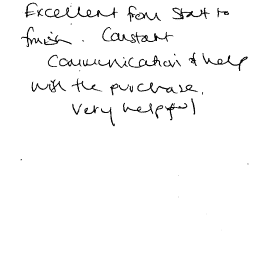 Excellent from start to
finish. Constant
communication & help
with the purchase.
Very helpful